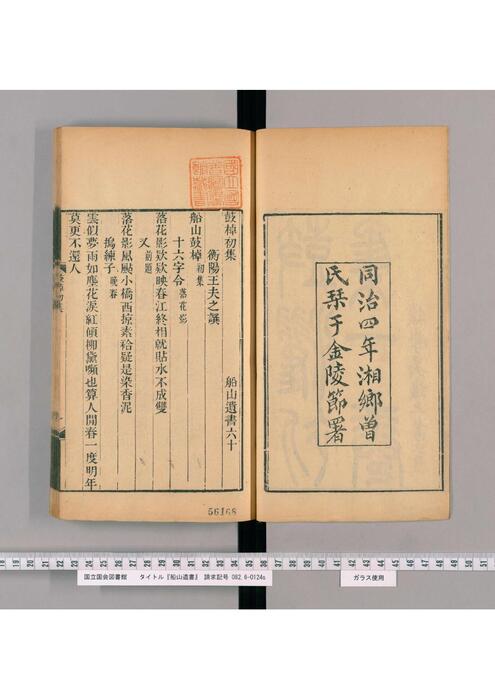 同治四年湘鄉曾
氏栞于金陵節署
鼓棹初集 船山遺書六十
衡陽王夫之譔
船山鼓棹初集
十六字令 落花影
落花影欵欵映春江終相就貼水不成雙
又 前題
落花影風颭小橋西掠素袷疑是染香泥
搗練子 晚春
雲似夢雨如塵花淚紅傾柳黛顰也算人閒春一度明年
莫更不還人
56168
国立国会図書館 タイトル『船山遺書』 請求記号 082.6-0124s
ガラス使用